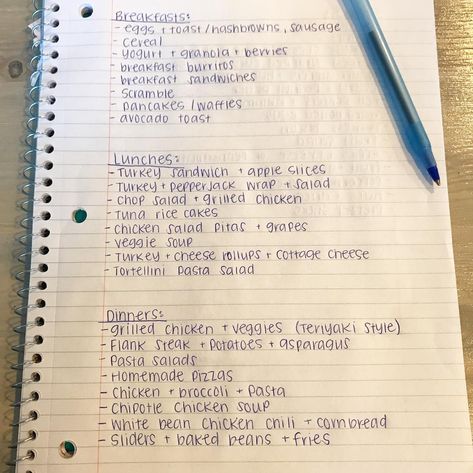 Breakfasts:
- eggs + toast/hashbrowns, sausage
- cereal
- yogurt + granola + berries
- breakfast burritos
- breakfast sandwiches
- scramble
- pancakes/waffles
- avocado toast
Lunches:
- Turkey sandwich + apple slices
- Turkey + pepperjack wrap + salad
- chop salad + grilled chicken
- Tuna rice cakes
- chicken salad pitas + grapes
- veggie soup
- Turkey + cheese rollups + cottage cheese
- Tortellini pasta salad
Dinners:
- grilled chicken + veggies (Teriyaki style)
- Flank steak + potatoes + asparagus
- Pasta salads
- Homemade pizzas
- Chicken + broccoli + pasta
- Chipotle chicken soup
- White bean chicken chili + cornbread
- Sliders + baked beans + fries